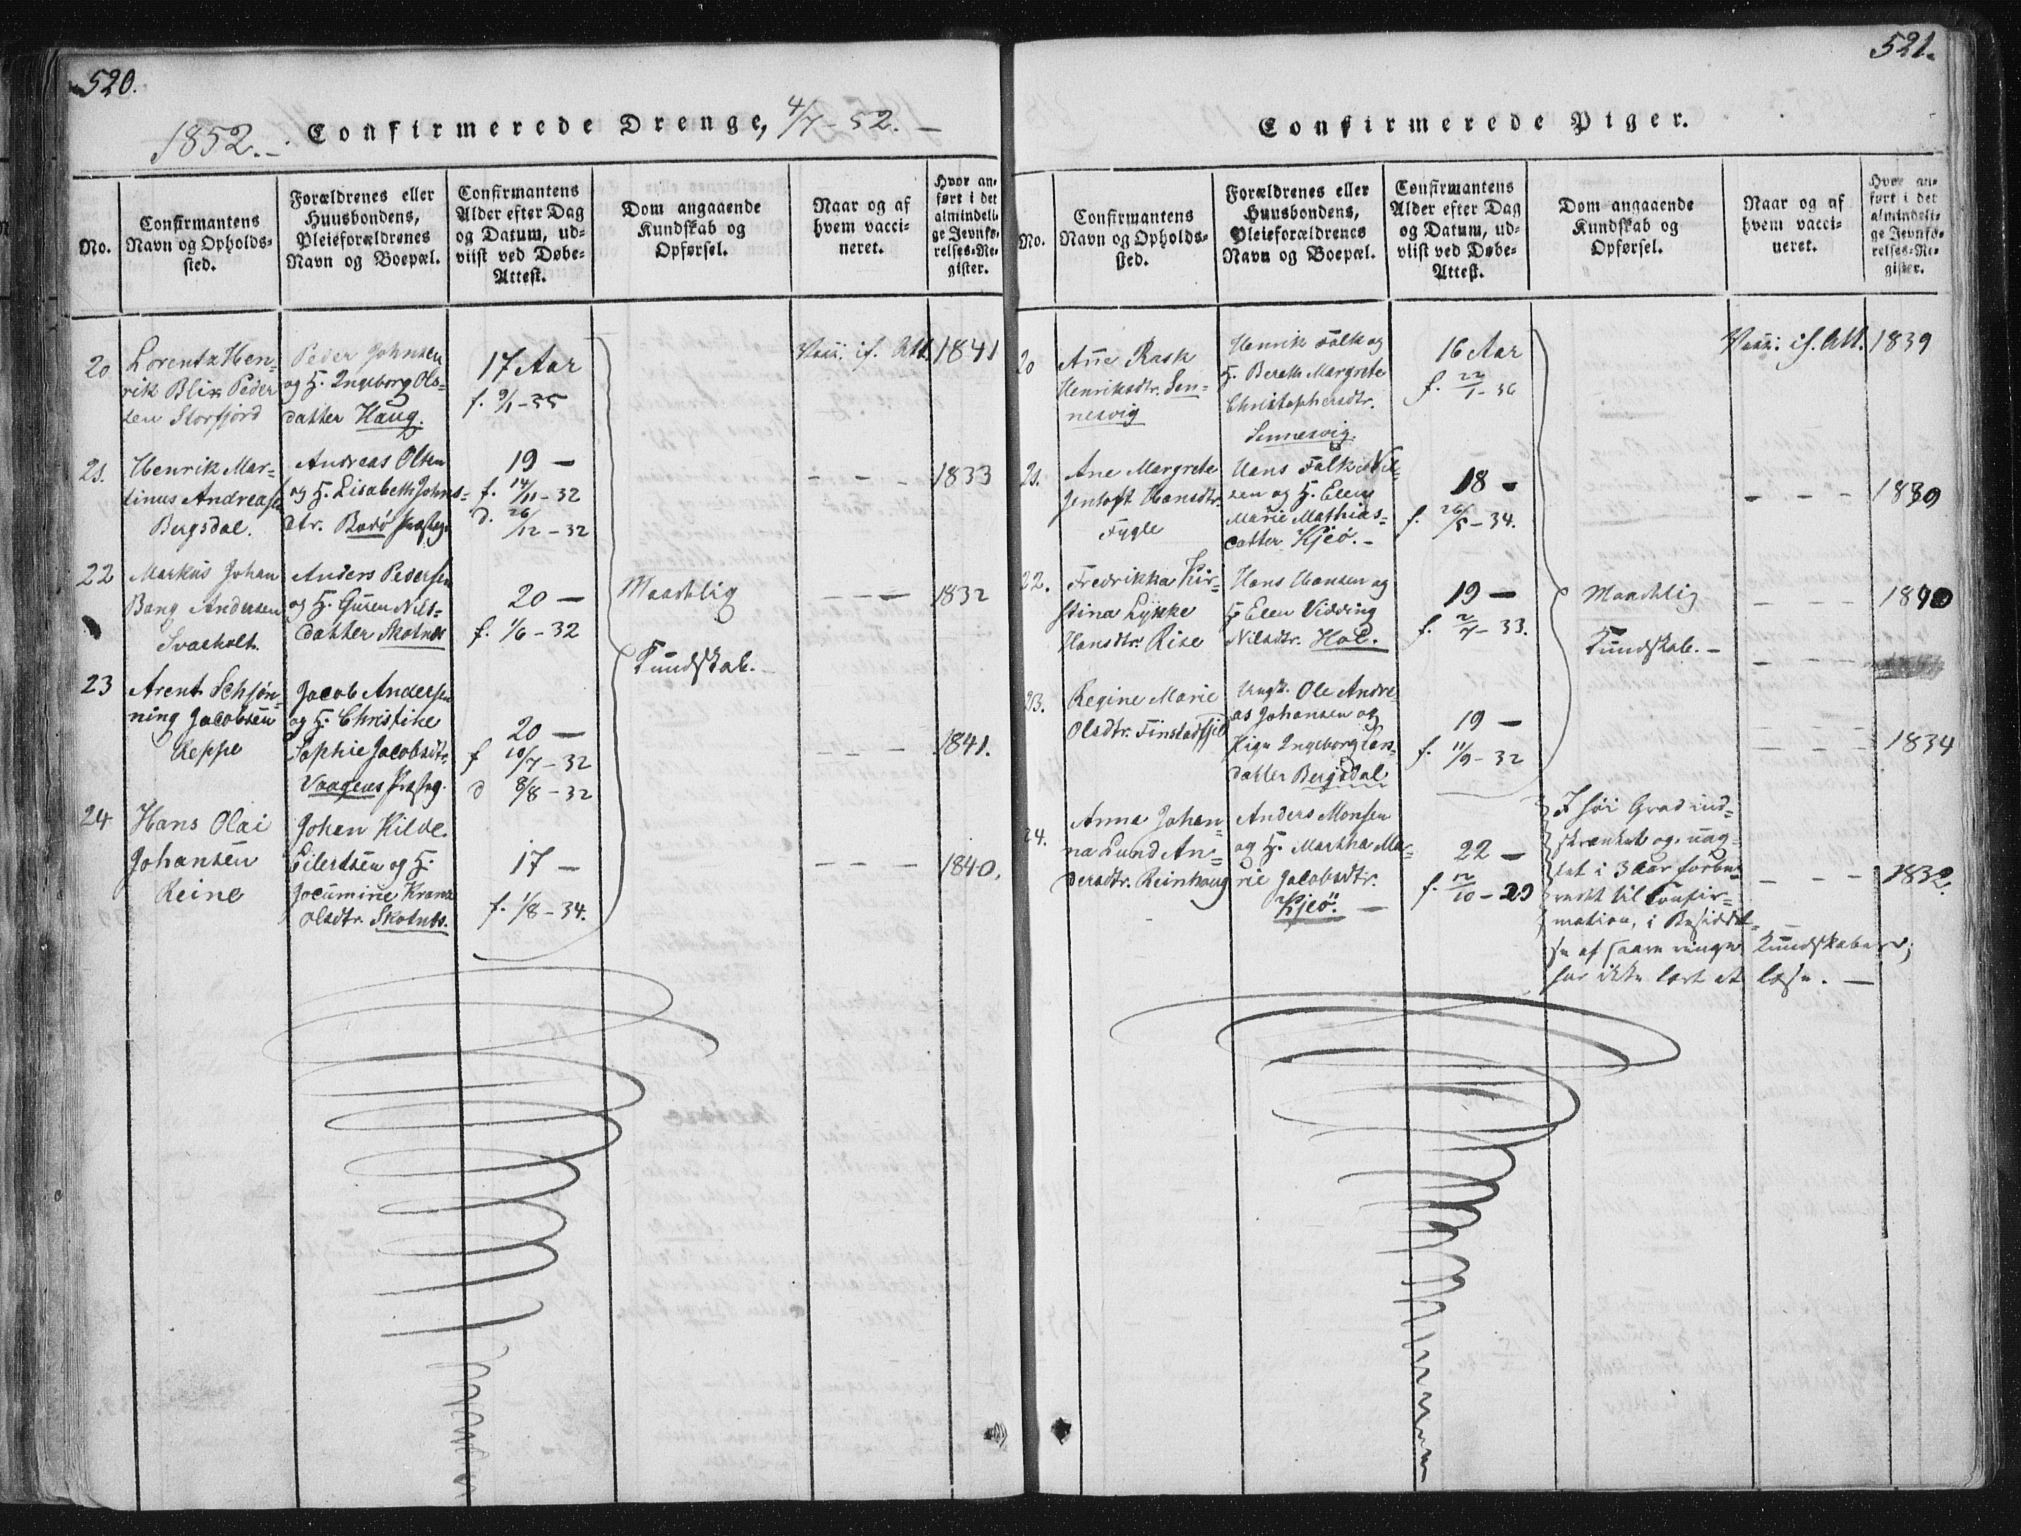 520.
1852. Confirmerede Drenge, 4/7-52.
No.
Confirmantens
Navn og Opholds-
sted.
Forældrenes eller
Huusbondens,
Pleieforældrenes
Navn og Boepæl.
Confirmantens
Alder efter Dag
og Datum, ud-
viist ved Døbe-
Attest.
Dom angaaende
Kundskab og
Opførsel.
Naar og af
hvem vacci-
neret.
Hvor an-
ført i det
almindeli-
ge Jevnfø-
relses-Re-
gister.
20
Lorentz Hen-
rik Blix Peder
sen Storfjord
Peder Johnsen
og H. Ingeborg Ols-
datter Haug.
17 Aar
f. 9/1-35
Vacc. if. Att.
1841
21.
Henrik Mar-
tinus Andreasen
Bergsdal.
Andreas Olsen
og H. Lisabeth Johns-
dtr. Bodø Præsteg.
19 -
f. 14/11-32
d. 26/12-32
- - -
1833
22
Markus Johan
Bang Andersen
Svarholt.
Anders Pedersen
og H. Guren Nils-
datter Skotnes
20 -
f. 1/6-32
Maadelig
Kundskab.
- - -
1832
23
Arent Schjøn-
ning Jacobsen
Reppe
Jacob Andersen
og H. Christike
Sophie Jacobsdtr.
Vaagens Præsteg.
20 -
f 10/7-32
d 8/8-32
- - -
1841.
24
Hans Olai
Johansen
Reine
Johan Kilde
Eilertsen og H.
Jocumine Krane
Olsdtr. Skotnes.
17 -
f. 1/8-34.
- - -
1840.
521.
Confirmerede Piger.
No.
Confirmantens
Navn og Opholds-
sted.
Forældrenes eller
Huusbondens,
Pleieforældrenes
Navn og Boepæl.
Confirmantens
Alder efter Dag
og Datum, ud-
viist ved Døbe-
Attest.
Dom angaaende
Kundskab og
Opførsel.
Naar og af
hvem vacci-
neret.
Hvor an-
ført i det
almindeli-
ge Jevnfø-
relses-Re-
gister.
20
Ane Rask
Henriksdtr. Sen-
nesvig
Henrik Falk og
H. Bereth Margrete
Christophersdtr.
Sennesvig.
16 Aar
f. 22/1-36
Vacc. if. Att.
1839
21.
Ane Margrete
Jentoft Hansdtr.
Fygle
Hans Falk Nil-
sen og H. Elen
Marie Mathias-
datter Kjeø.-
18 -
f. 26/5-34.
- - -
1839
22.
Fredrikka Kir-
stina Lykke
Hansdtr. Rise
Hans Hansen og
H Elen Vidding
Nilsdtr. Hol.
19 -
f. 2/7-33.
Maadelig
Kundskab.-
- - -
1840
23.
Regine Marie
Olsdtr. Finstadfjel
Ungk. Ole Andre-
as Johansen og
Pige Ingeborg Lars-
datter Bergsdal
19 -
f. 11/9-32
- - -
1834
24.
Anna Johan-
na Lund An-
dersdtr. Reinhoug
Anders Monsen
og H. Martha Ma-
rie Jacobsdtr.
Kjeø.-
22 -
f. 12/10-29
I høi Grad ind-
skrænket og, uag-
tet i 3 Aar forbe-
redt til Confir-
mation, i Besiddel-
se af saare ringe Kundskaber;
har ikke lært at læse.-
- - -
1832.